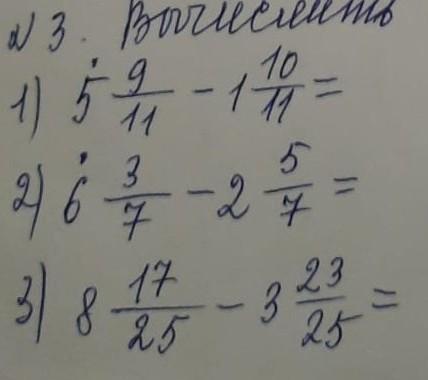 № 3. Вычислить
1) 5 9/11 − 1 10/11 =
2) 6 3/7 − 2 5/7 =
3) 8 17/25 − 3 23/25 =